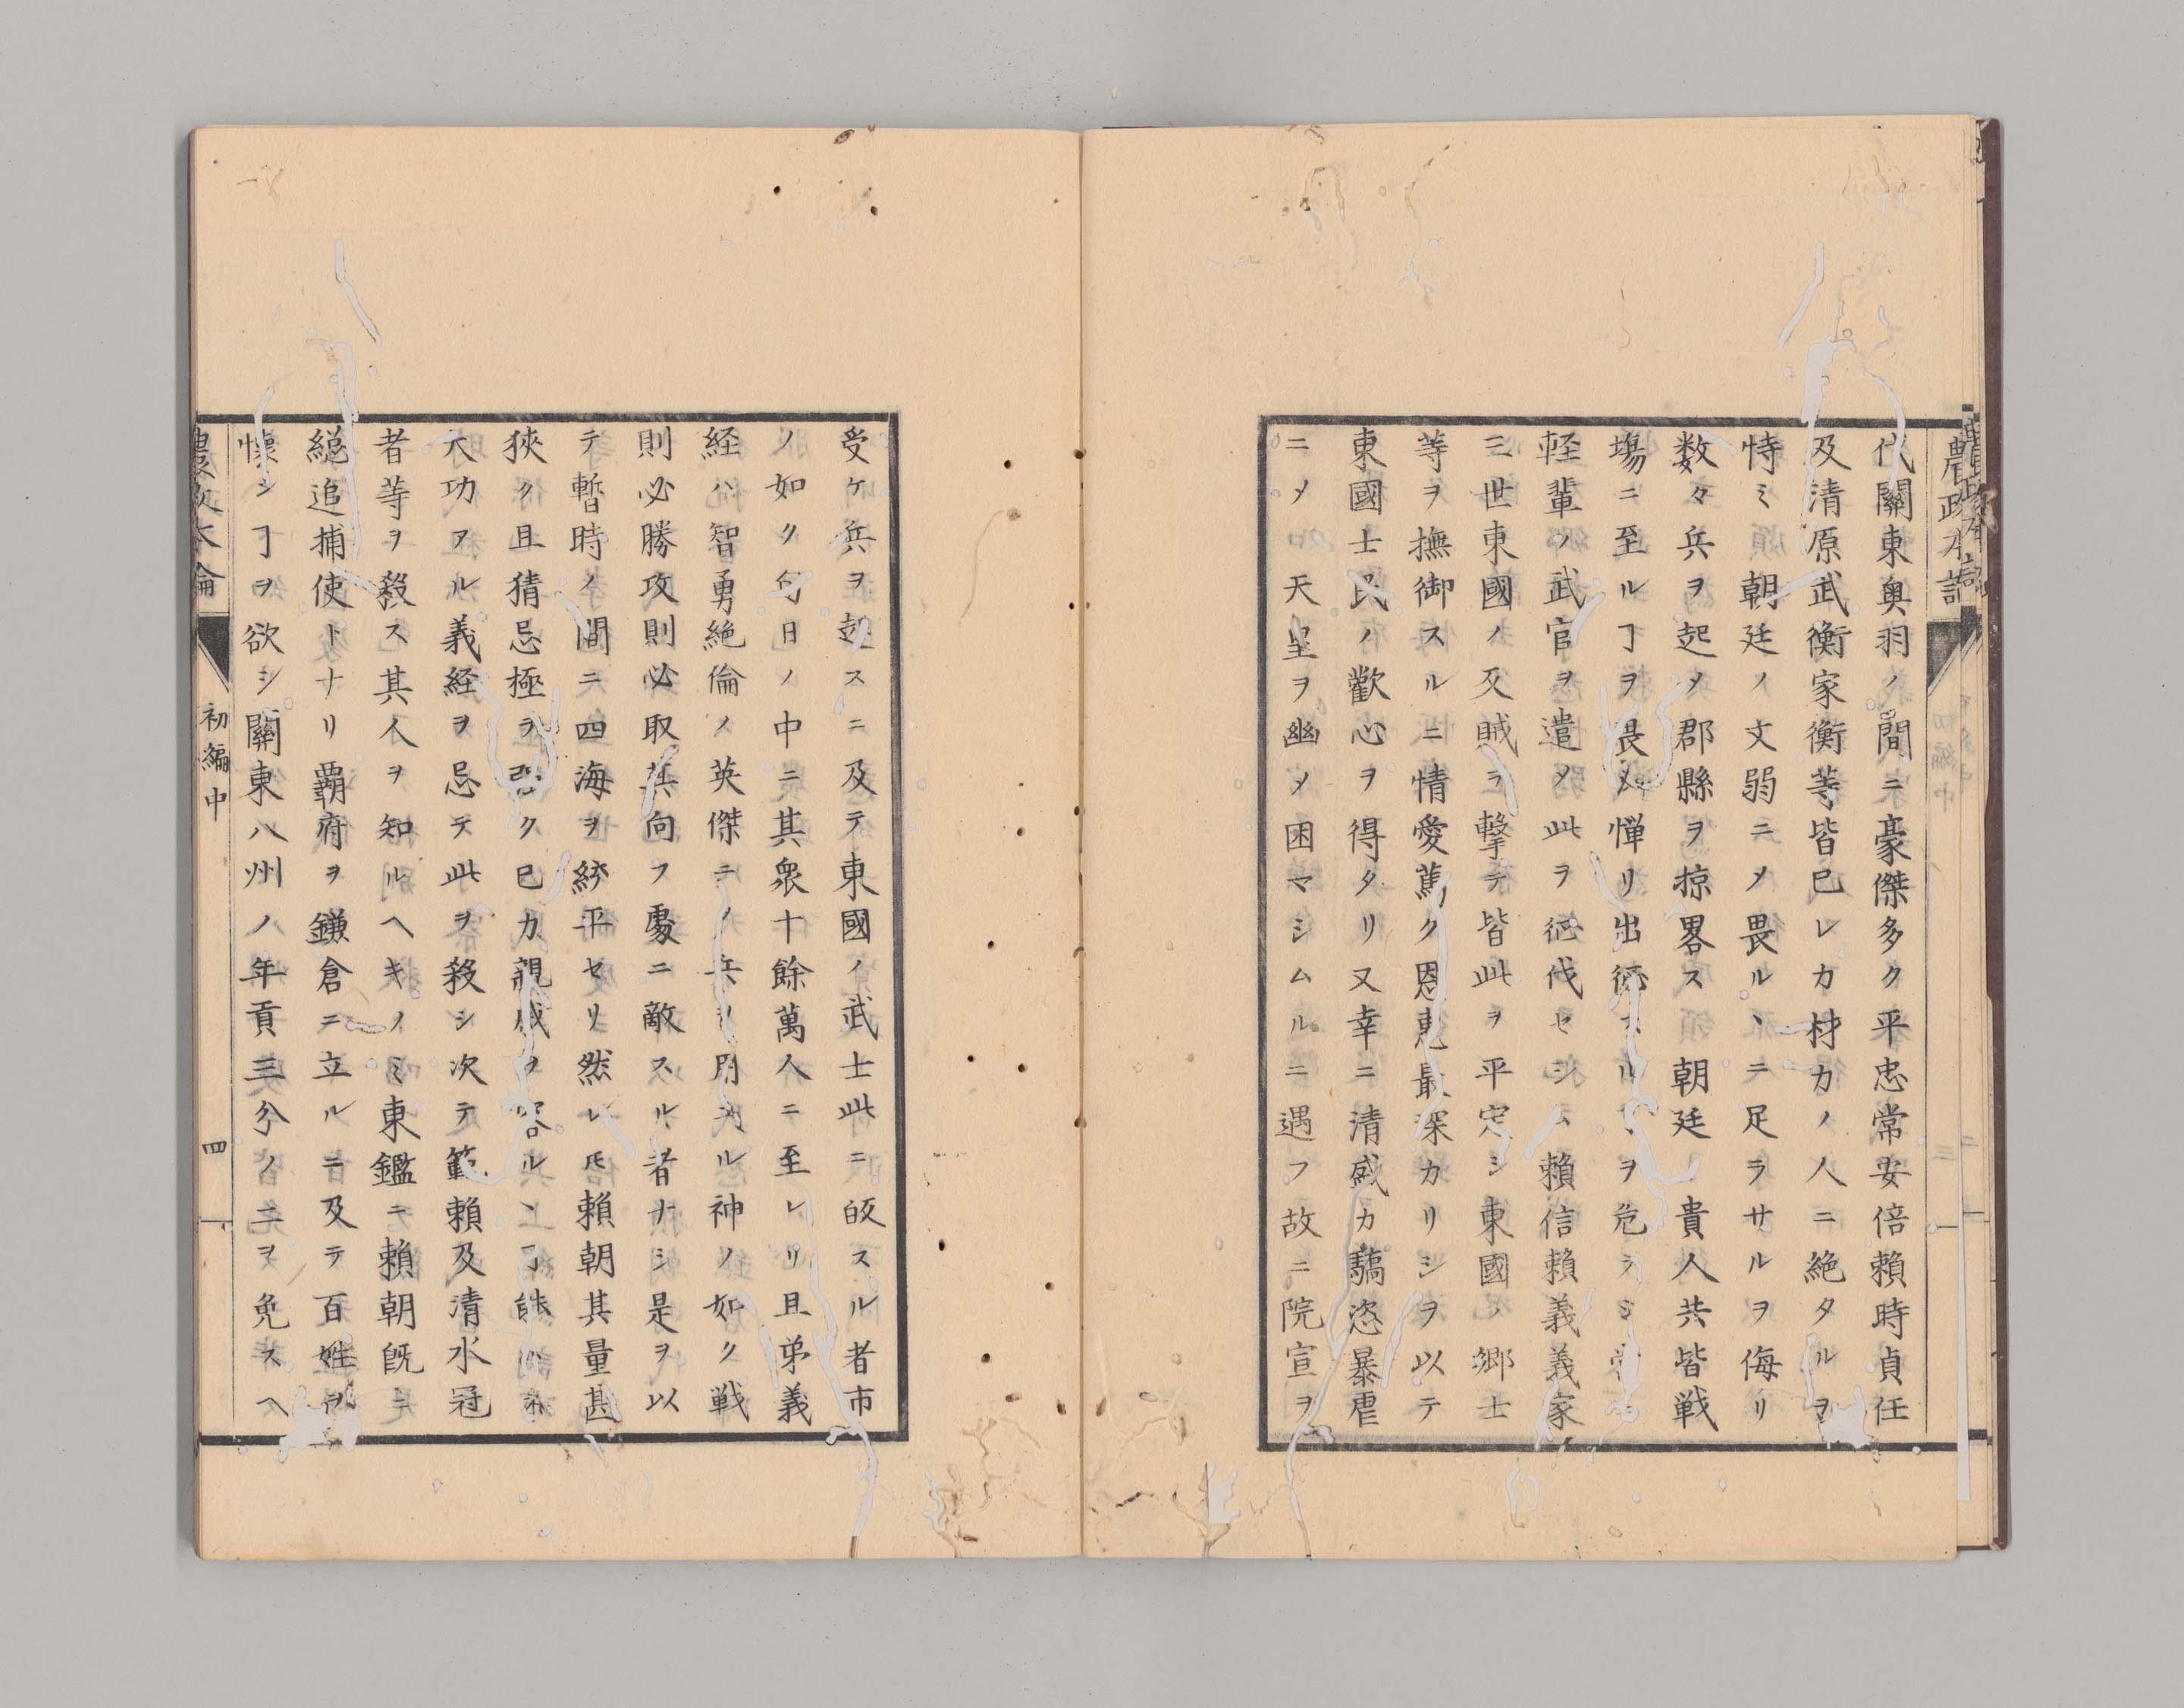 農政本論
代關東奥羽ノ間ニ豪傑多ク平忠常安倍賴時貞任
及清原武衡家衡等皆已レカ材力ノ人ニ絶タルヲ
恃ミ朝廷ノ文弱ニメ畏ルヽニ足ラサルヲ侮リ
数々兵ヲ起メ郡縣ヲ掠畧ス朝廷ノ貴人共皆戦
塲ニ至ルヿヲ畏メ憚リ出征スルヿヲ危ラシ
軽輩ノ武官ヲ遣メ此ヲ征伐セシム賴信賴義義家
三世東國ノ叉賊ヲ擊テ皆此ヲ平定シ東國ノ郷士
等ヲ撫御スルニ情愛篤ク恩惠最深カリシヲ以テ
東國士民ノ歡心ヲ得タリ又幸ニ清盛カ驕恣暴虐
ニメ天皇ヲ幽メ困マシムルニ遇フ故ニ院宣ヲ
受ケ兵ヲ起スニ及テ東國ノ武士此ニ皈スル者市
ノ如ク旬日ノ中ニ其衆十餘萬人ニ至レリ且弟義
経ハ智勇絶倫ノ英傑ニメ兵ヲ用フル神ノ如ク戦
則必勝攻則必取其向フ處ニ敵スル者ナシ是ヲ以
テ暫時ノ間ニ四海ヲ統平セリ然レ𪜈賴朝其量甚
狹ク且猜忌極ヲ深ク已カ親戚ヲ容ルヽヿ能ハス
大功アル義経ヲ忌テ此ヲ殺シ次テ範賴及清水冠
者等ヲ殺ス其人ヲ知ルヘキノミ東鑑ニ賴朝既ニ
總追捕使トナリ覇府ヲ鎌倉ニ立ルニ及テ百姓ヲ
懐シヿヲ欲シ關東八州ノ年貢三分ノ二ヲ免スヘ
農政本論
初編中
四